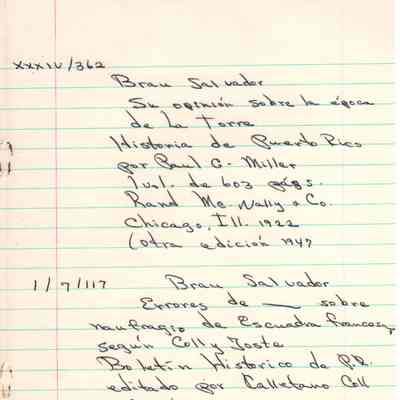 XXXIV/362
Brau Salvador
Su opinión sobre la época
de La Torre
Historia de Puerto Rico
por Paul G. Miller
1 vol. de 603 págs.
Rand Mc. Nally & Co.
Chicago, Ill. 1922
(otra edición 1947
1/7/117 Brau Salvador
Errores de — sobre
naufragio de Escuadra francesa,
según Coll y Toste
Boletín Historico de P.R.
editado por Calletano Coll